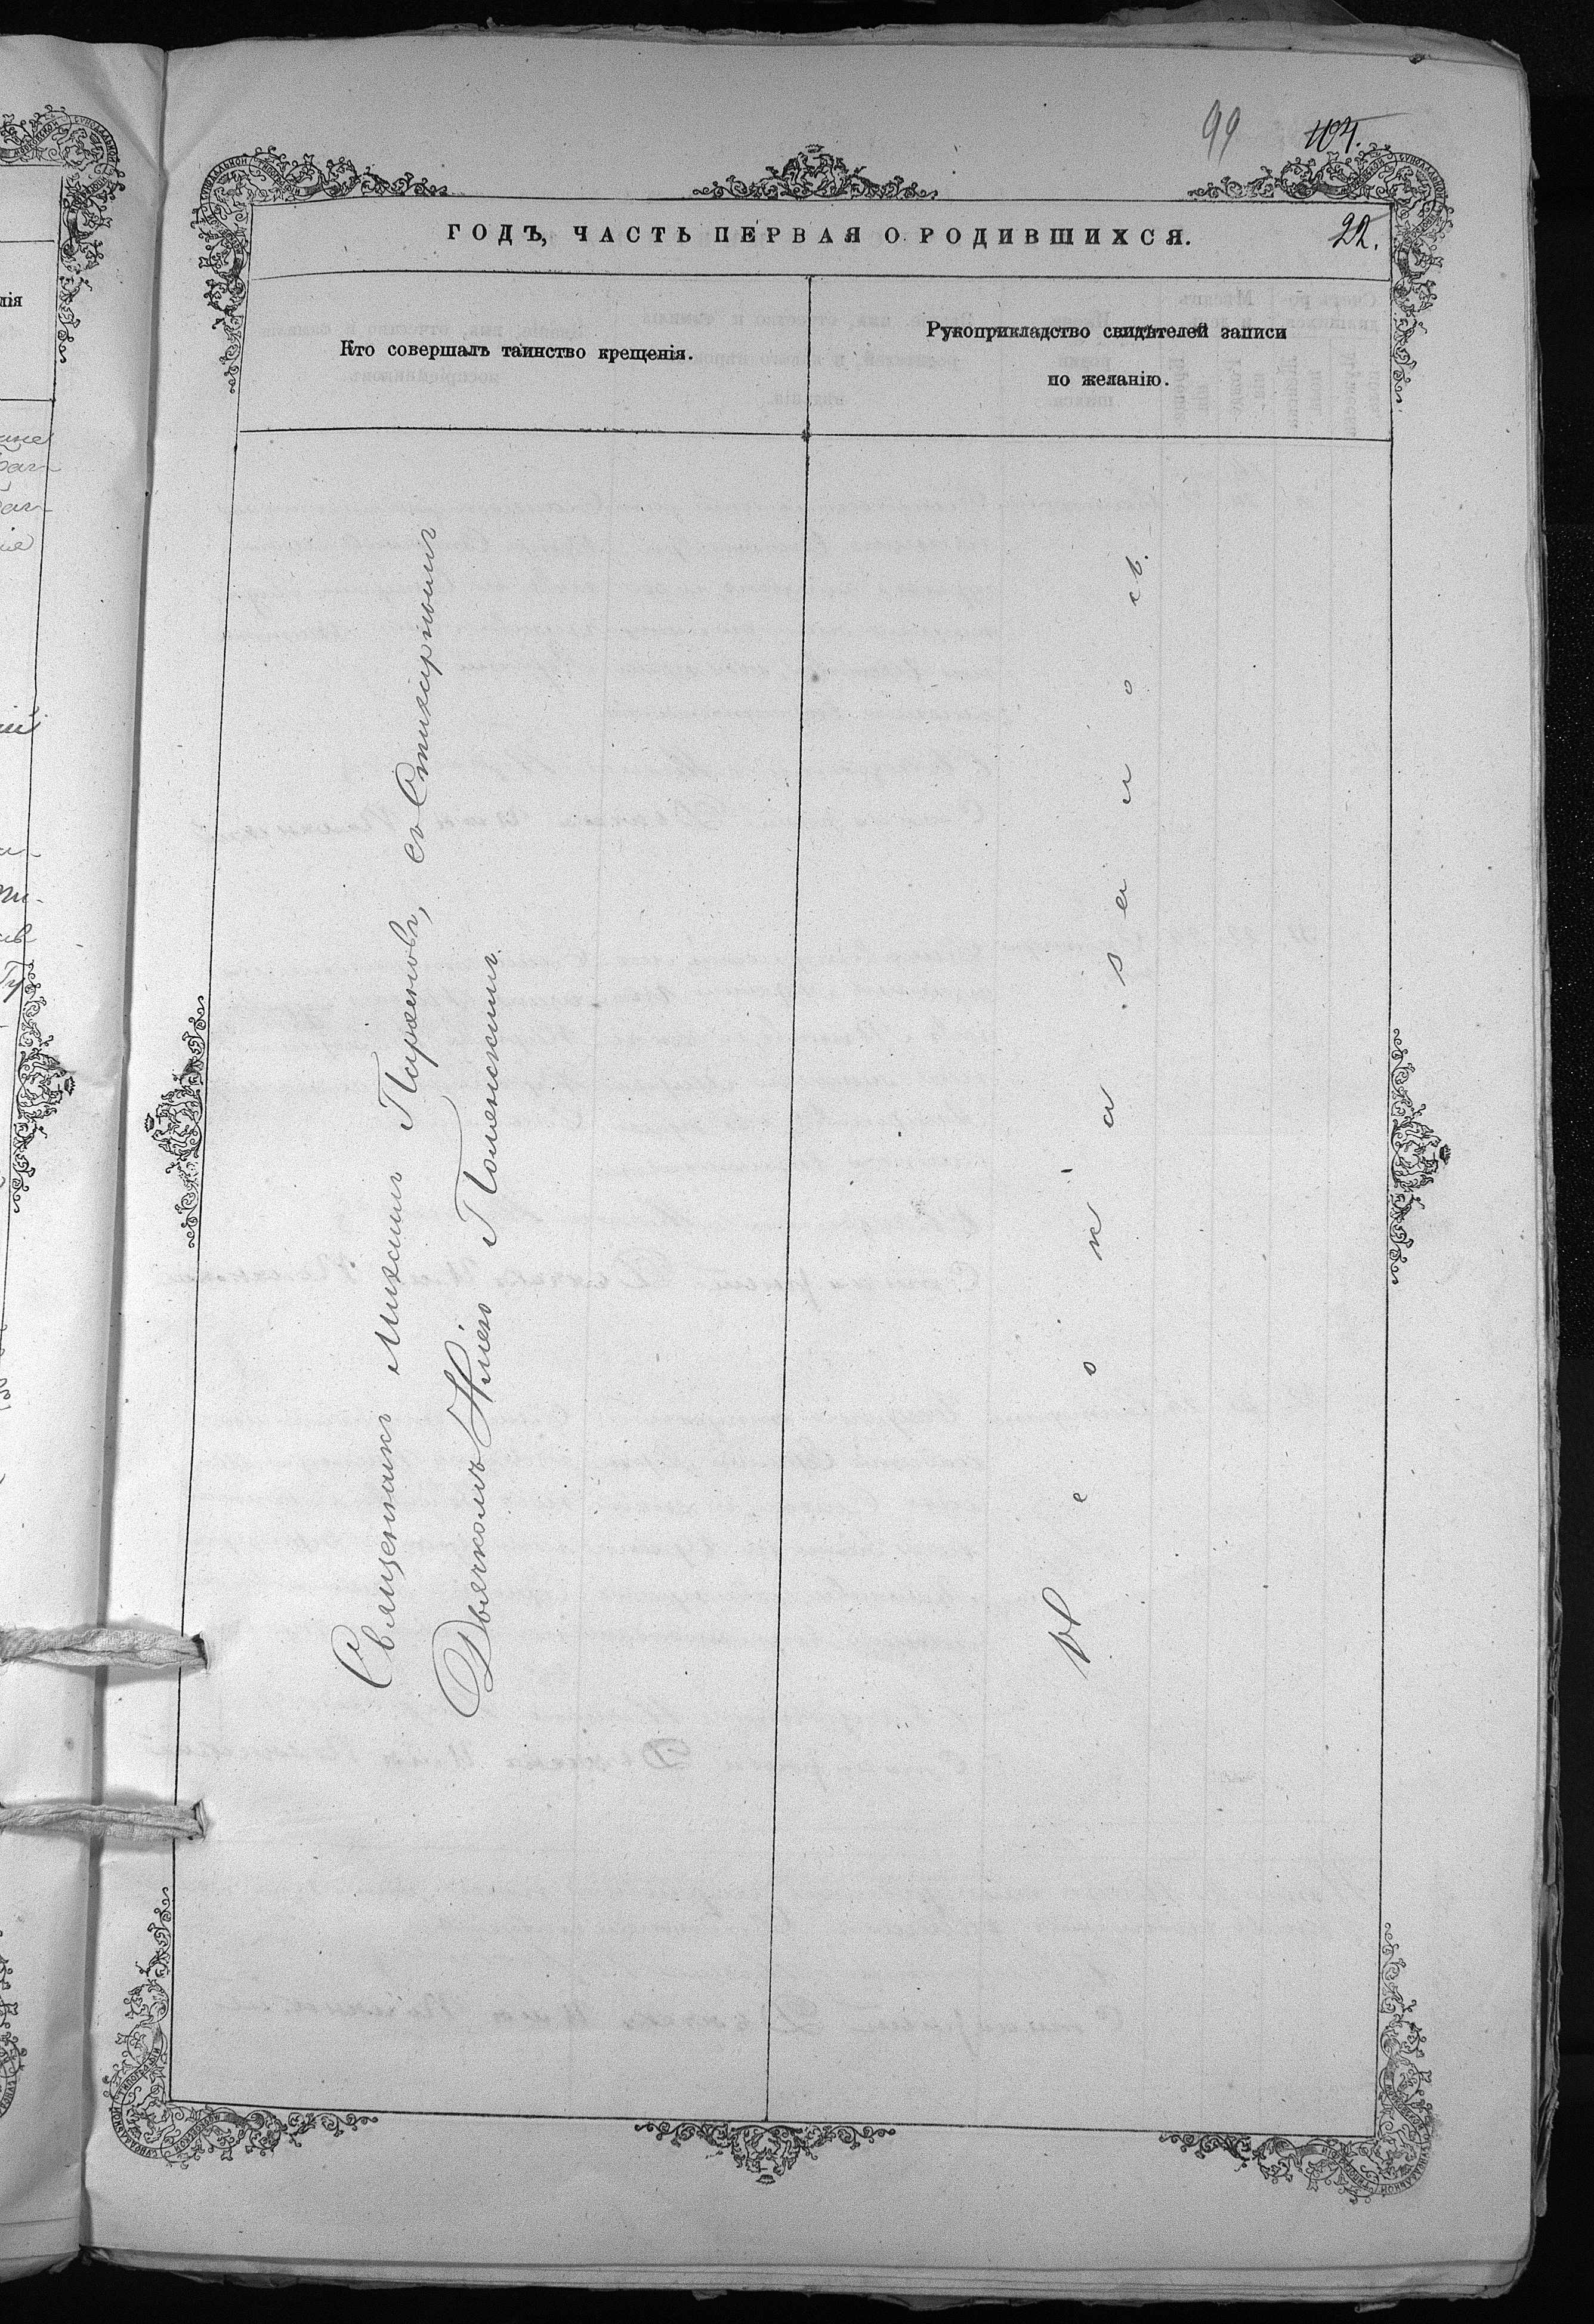 99
22.
ГОДЪ, ЧАСТЬ ПЕРВАЯ О РОДИВШИХСЯ.
Кто совершалъ таинство крещенія.
Рукоприкладство свидѣтелей записи
по желанію.
Священникъ Михаилъ съ Стихарнымъ
Дьячкомъ Иліею Полянскимъ.
Не оказалось.